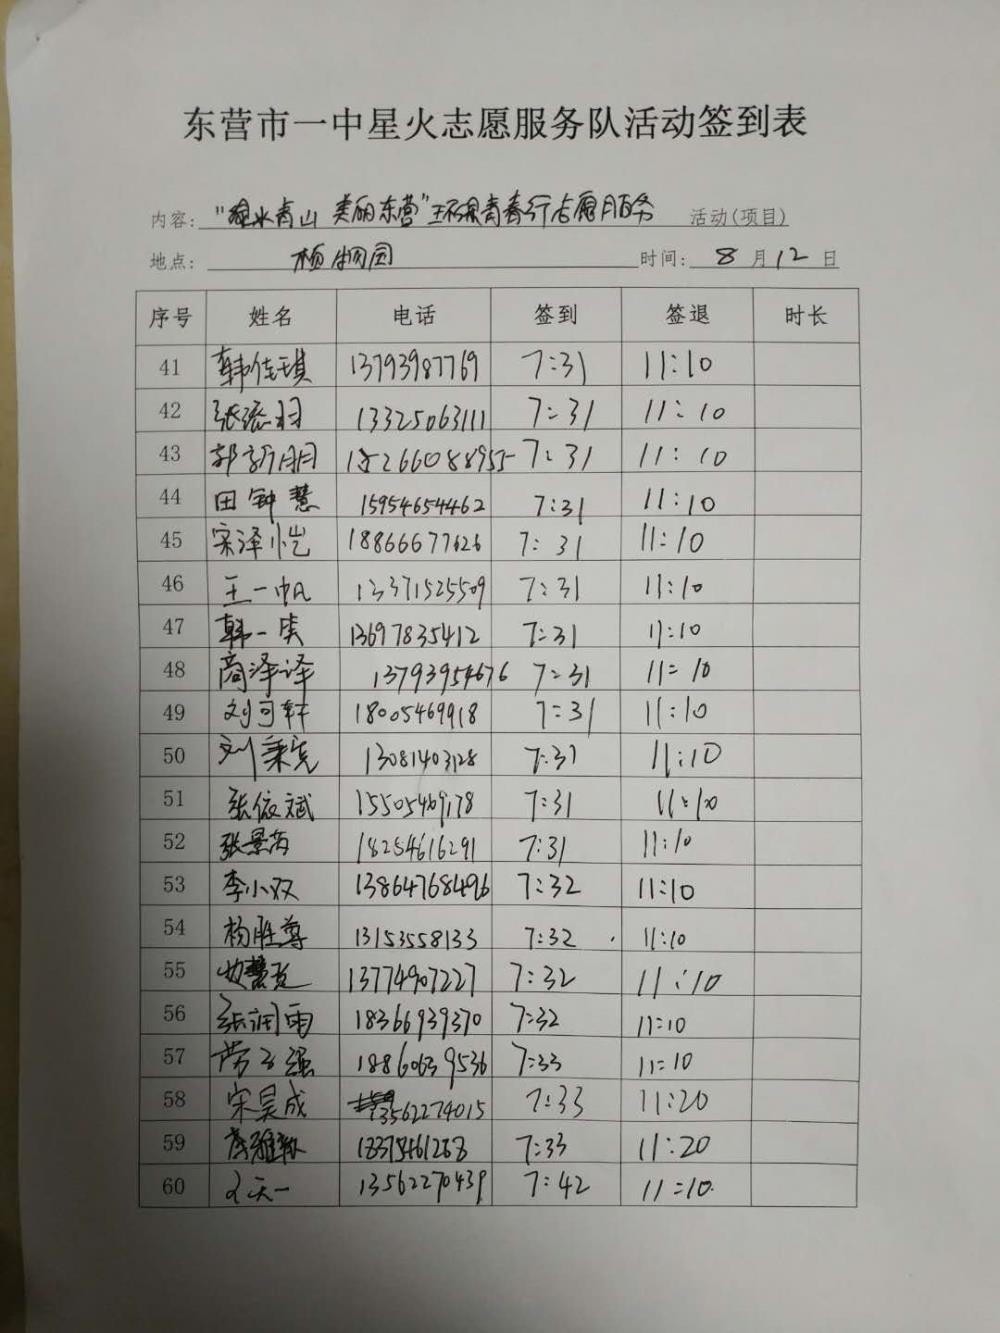 东营市一中星火志愿服务队活动签到表
内容: "绿水青山 美丽东营"环保青春行志愿服务 活动(项目)
地点: 植物园 时间: 8月12日
序号 姓名 电话 签到 签退 时长
41 韩佳琪 13793987769 7:31 11:10
42 张添羽 13325063111 7:31 11:10
43 郭新月 15266088955 7:31 11:10
44 田钟慧 15954654462 7:31 11:10
45 宋泽恺 18866677626 7:31 11:10
46 王一帆 13371525509 7:31 11:10
47 韩一 13697835412 7:31 11:10
48 商泽译 13793954676 7:31 11:10
49 刘可轩 18005469918 7:31 11:10
50 刘秉 13081403128 7:31 11:10
51 张依斌 15505469178 7:31 11:10
52 张景芮 18254616291 7:31 11:10
53 李小双 13864768496 7:32 11:10
54 杨胜尊 13153558133 7:32 11:10
55 13774907227 7:32 11:10
56 张润雨 18366939370 7:32 11:10
57 劳子强 18860639536 7:33 11:10
58 宋昊成 13562274015 7:33 11:20
59 7:33 11:20
60 天一 13562270439 7:42 11:10